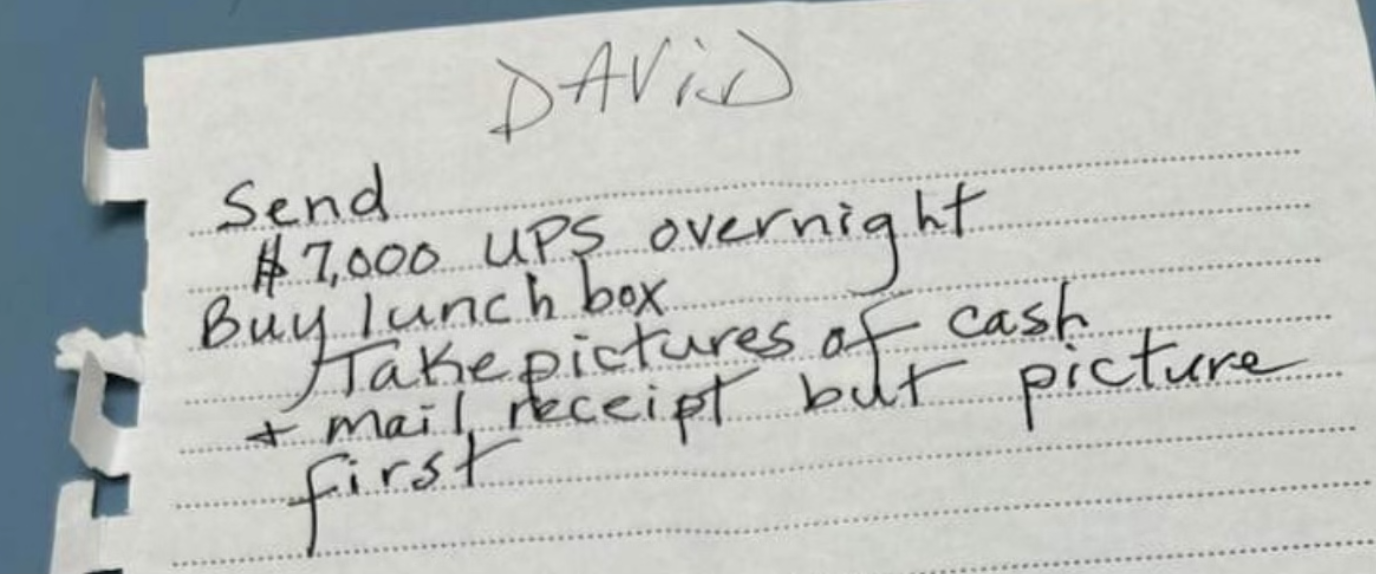 DAViD
Send
$7,000 UPS overnight
Buy lunch box
Take pictures of cash
+ mail receipt but picture
first